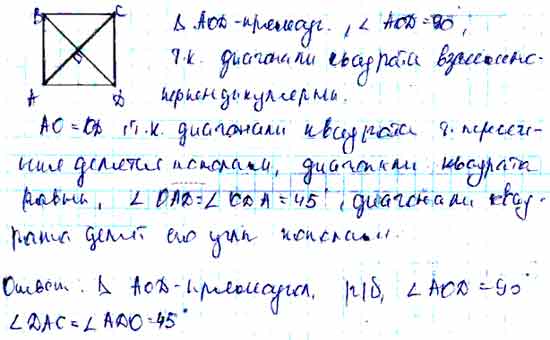 B C
A D
O
Δ AOD-прямоуг., ∠ AOD=90°,
т.к. диагонали квадрата взаимно-
перпендикулярны.
AO=OD, т.к. диагонали квадрата т. пересече-
ния делятся пополам, диагонали квадрата
равны, ∠ OAD=∠ ODA=45°, диагонали квад-
рата делят его углы пополам.
Ответ: Δ AOD-прямоугол, р/б, ∠ AOD=90°
∠DAC=∠ADO=45°